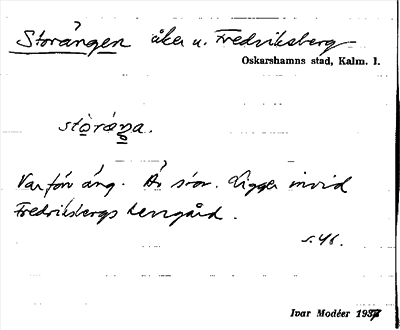 Storängen åker u. Fredriksberg
Oskarshamns stad, Kalm. l.
stòráŋa.
Var förr äng. Är stor. Ligger invid
Fredriksbergs herrgård.
s. 46.
Ivar Modéer 1937